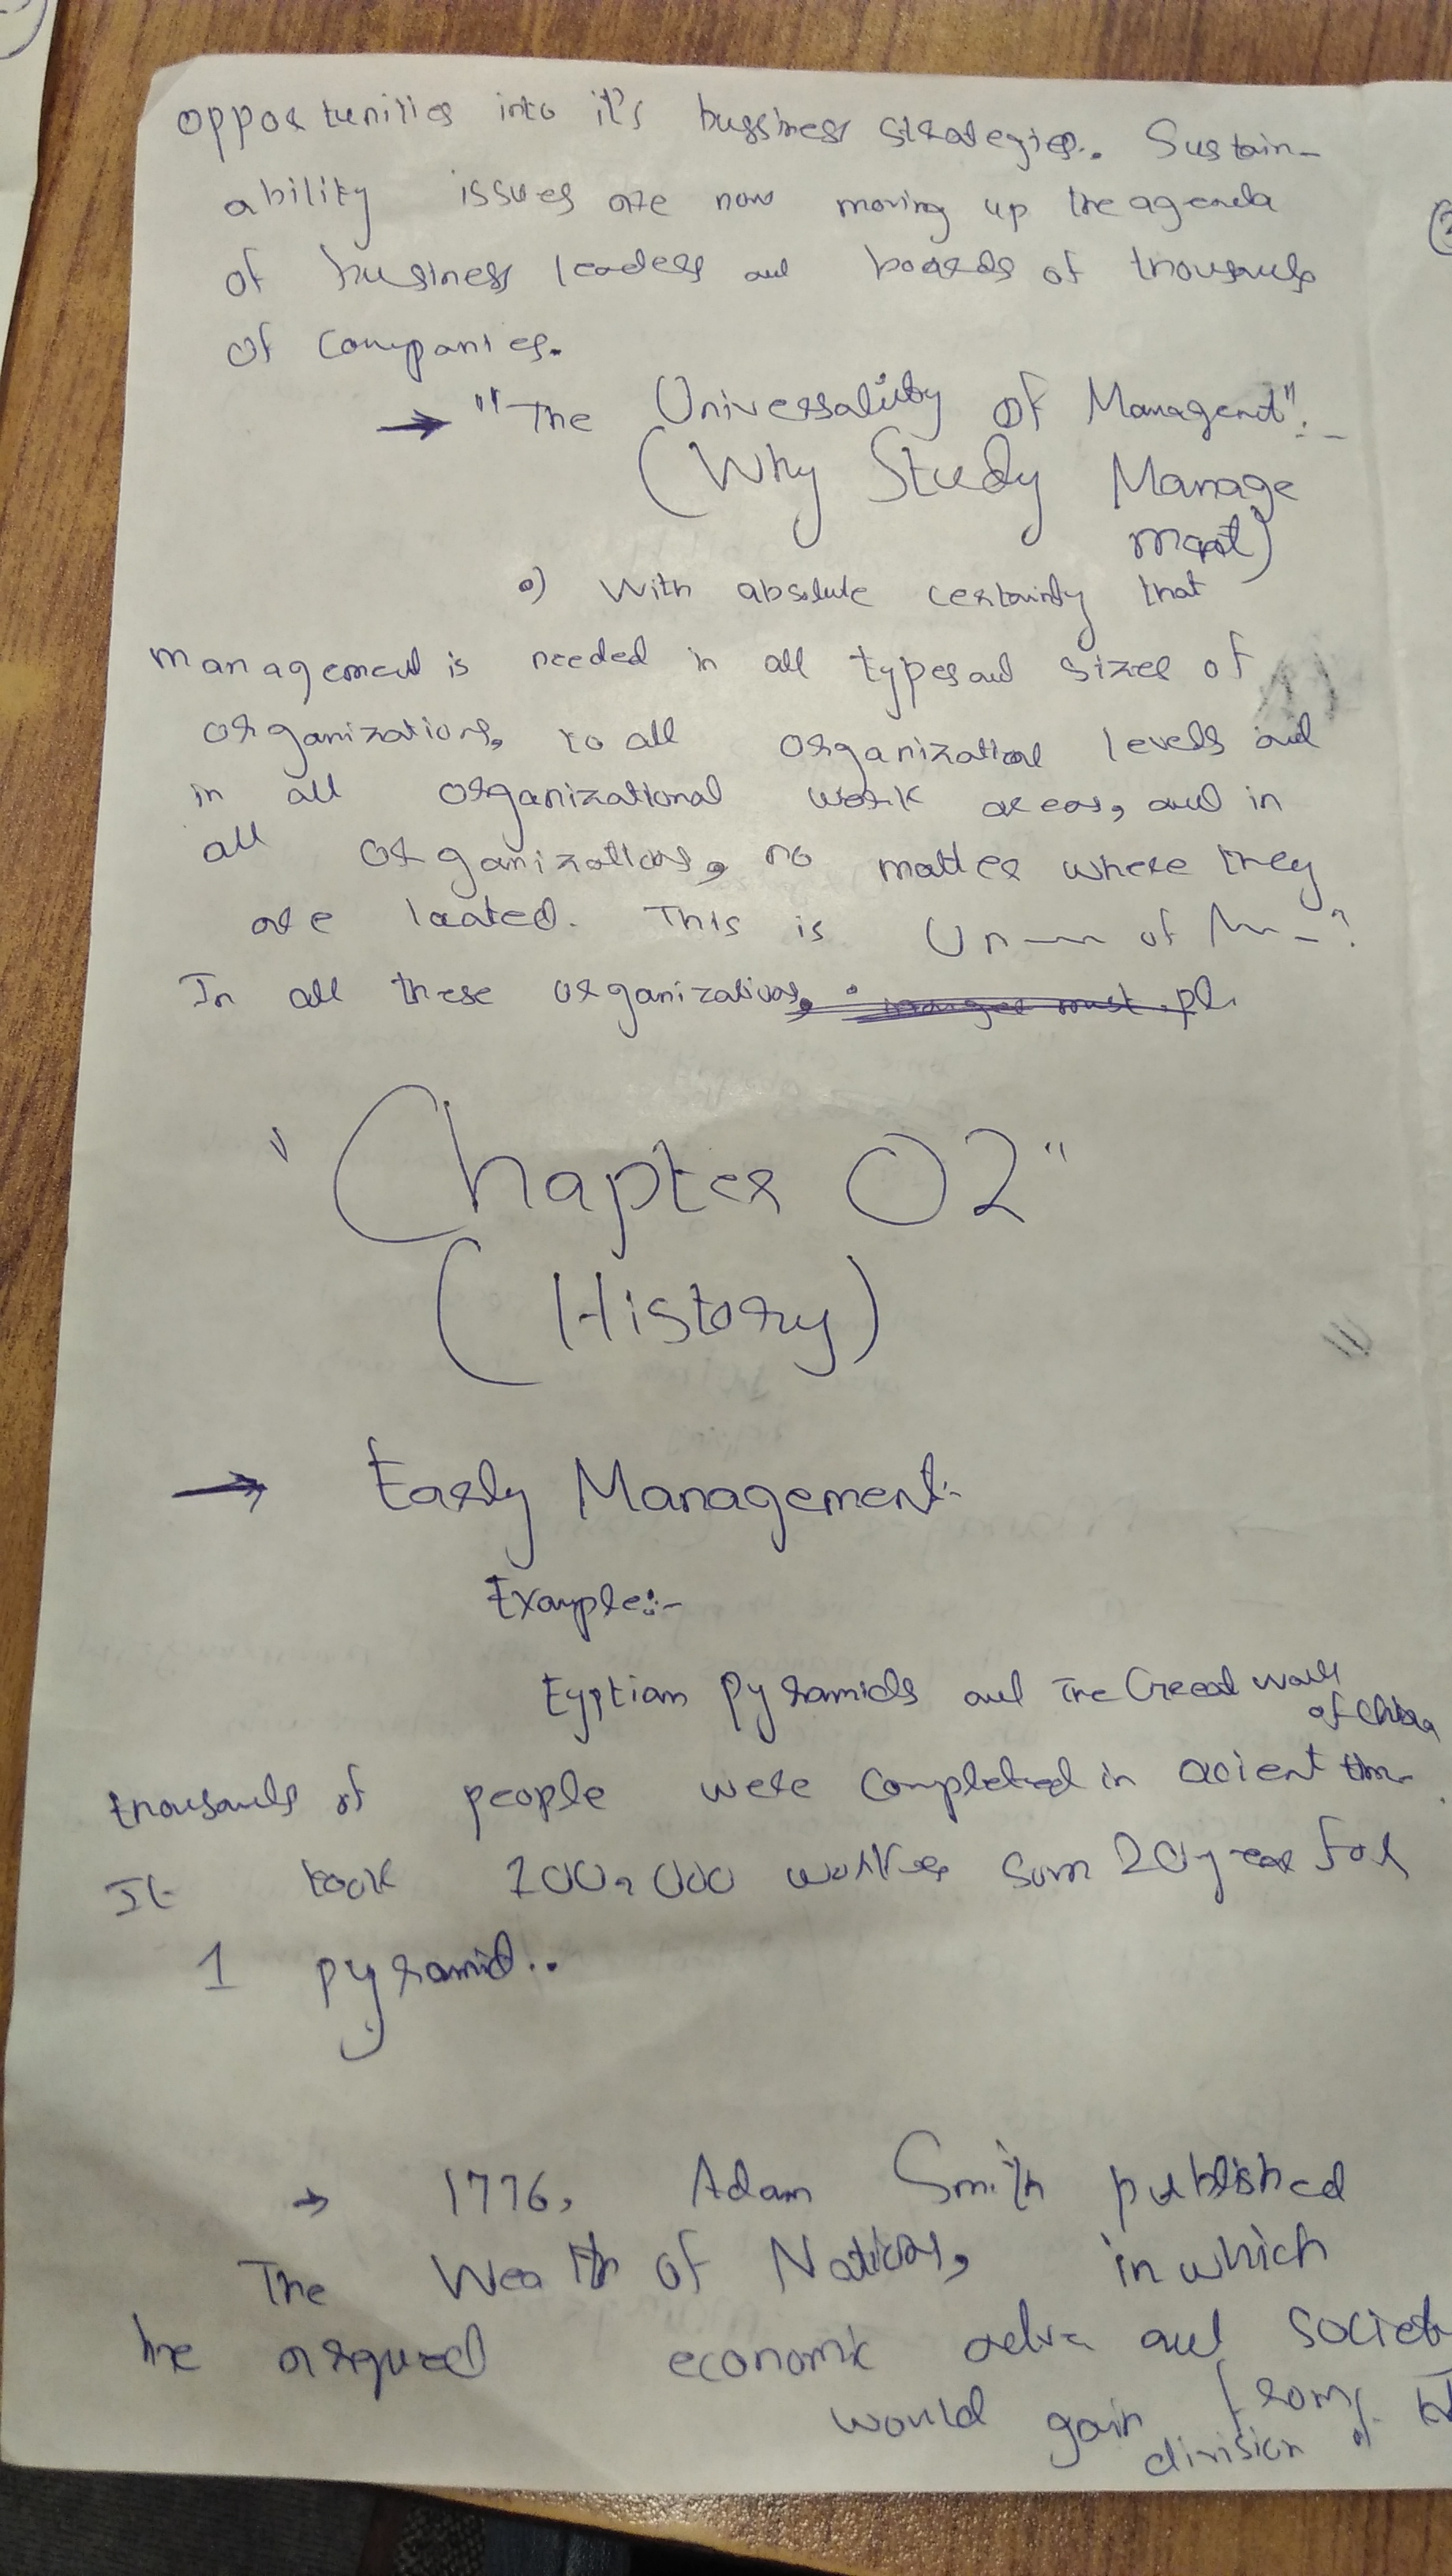 opportunities into it's bussiness strategies. Sustain-
ability issues are now moving up the agenda
of business leaders and boards of thousands
of Companies.
→ "The Universality of Managent":-
(Why Study Manage
ment)
o) With absolute certainty that
management is needed in all types and sizes of
organizations, to all organizational levels and
in all organizational work areas, and in
all organizations, no matter where they
are located. This is Un of
In all these organizations,
"Chapter 02"
(History)
→ Early Management:-
Example:-
Egyptian pyramids and The Great wall
of China
thousands of people were completed in acient
It took 100,000 workers 20 year for
1 pyramid..
→ 1776, Adam Smith published
The Wealth of Nations, in which
he argued economic adva and societ
would gain from
division of